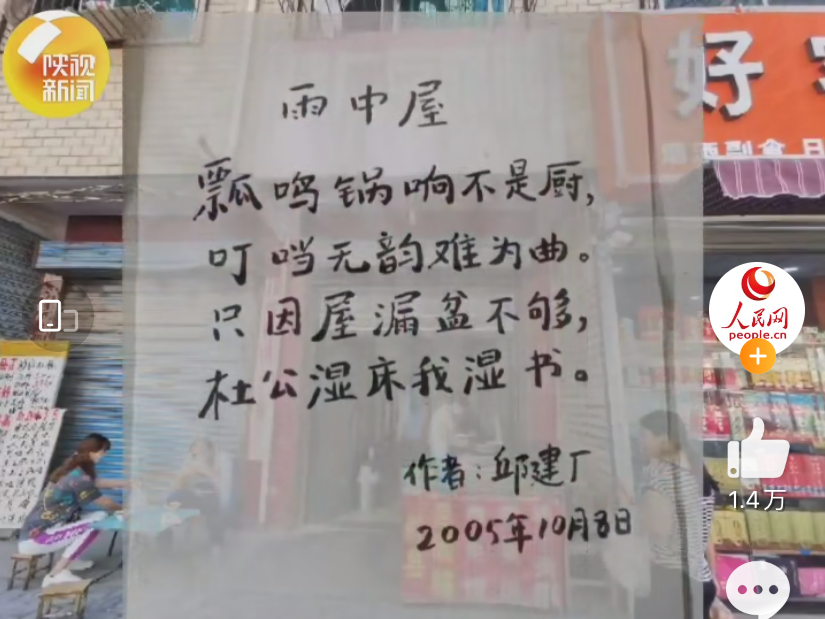 陕视
新闻
雨中屋
瓢鸣锅响不是厨，
叮咚无韵难为曲。
只因屋漏盆不够，
杜公湿床我湿书。
作者：邱建厂
2005年10月8日
好
副食 日
人民网
people.cn
1.4万